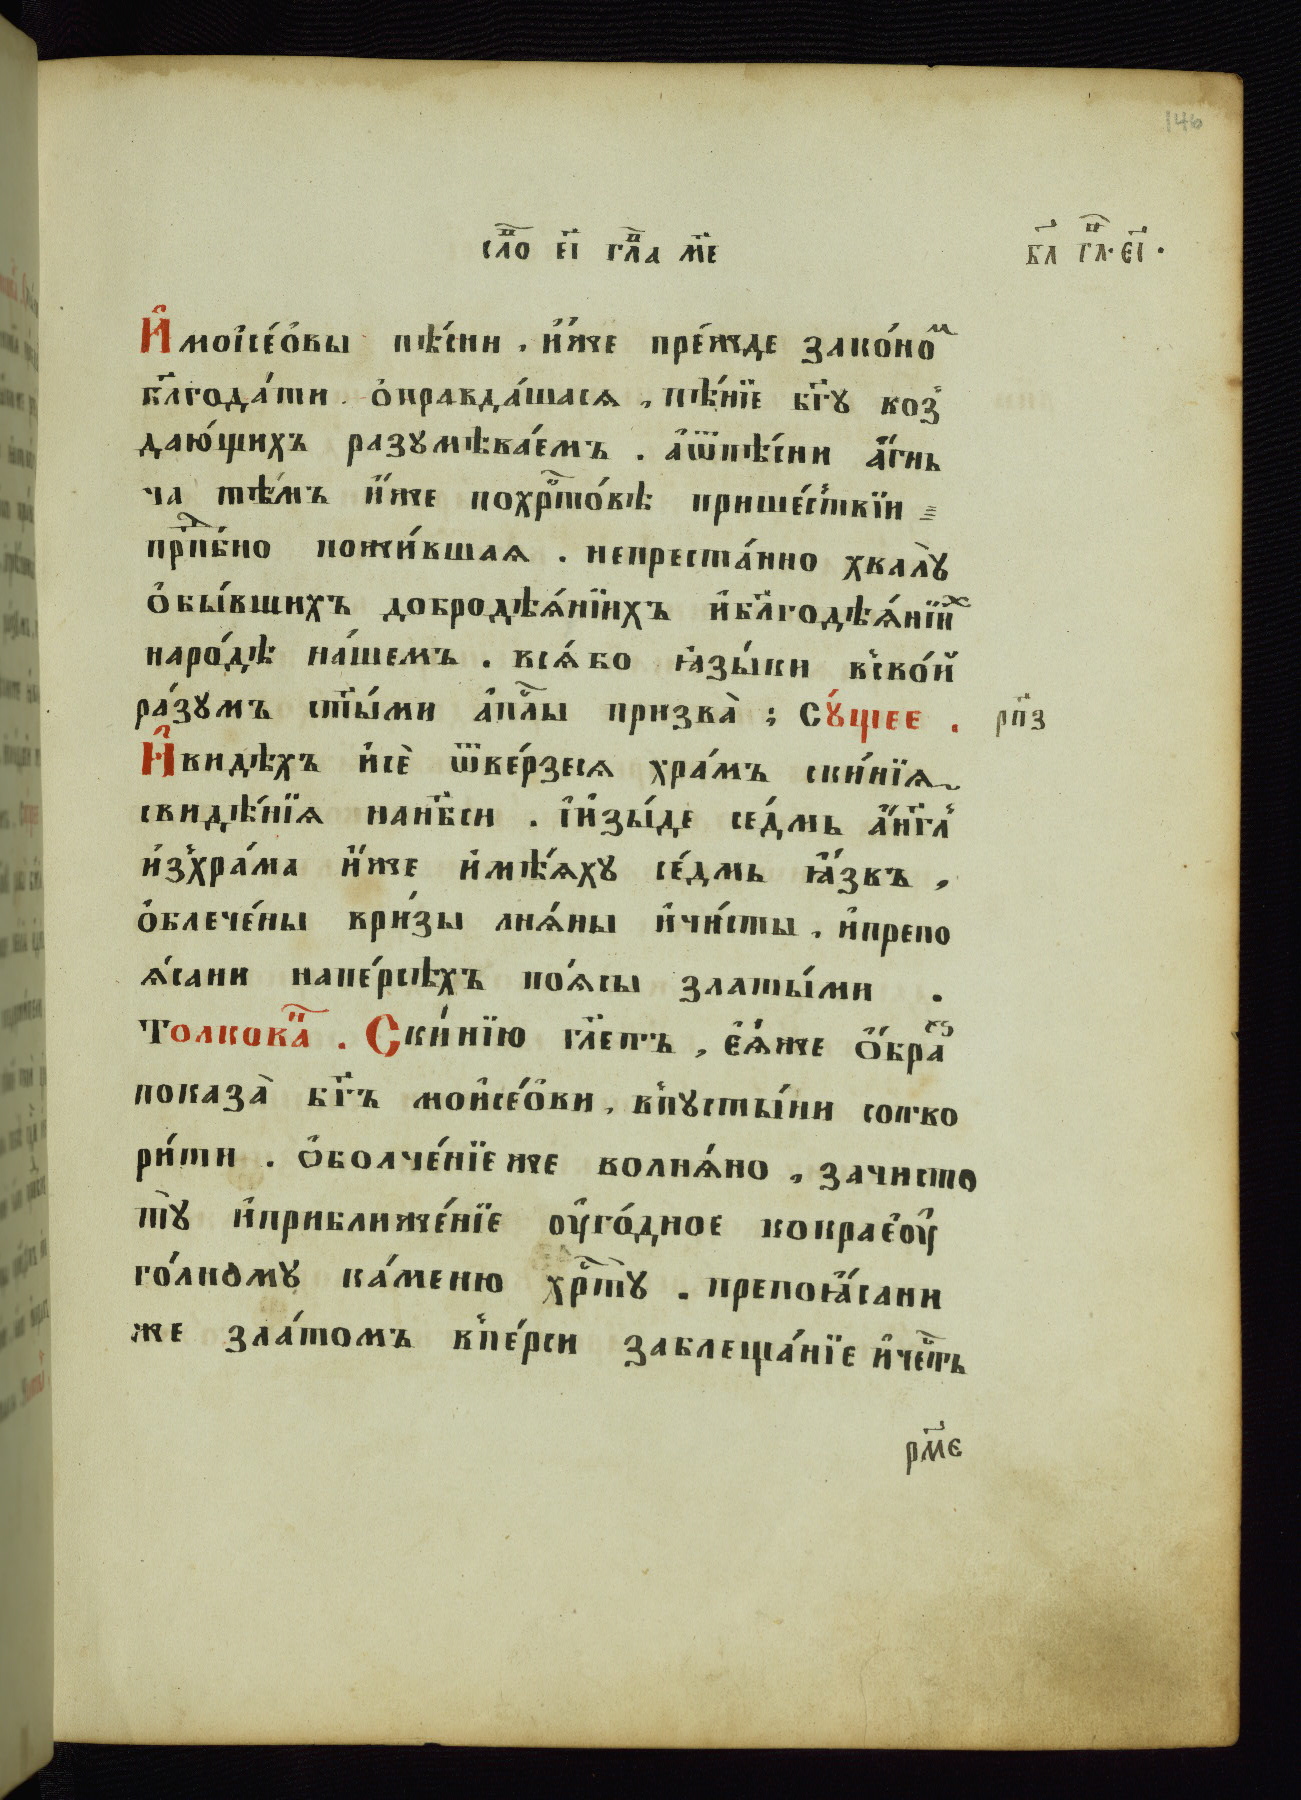 146
сло҇в е҃і гла҇в м҃е
бл҃ гл҇в. е҃і .
И҆̑ моі҆се́ѻ҆вы пѣ́сни . и҆́же пре́жде зако́ноᷨ
бл҃года́ти ѻ҆правда́шася , пѣ́нїе бг҃у воз
даю́щихъ разумѣва́емъ . а҆ѿпѣ́сни а҆́гнь
ча тѣ́мъ и҆́же похрⷭ҇то́вѣ прише́ствїи
прпⷣбно пожи́вшая . непреста́нно хвалꙋ̀
ѻ҆бы́вшихъ добродѣѧ́нїихъ и҆бл҃годѣѧ́нїиⷯ
наро́дѣ на́шемъ . всѧ́бо ꙗ҆зы́ки вско́й
ра́зумъ ст҃ы́ми а҆пⷭ҇лы призва̀ ; Су́щее .
рп҃з
И҆̑видѣхъ и҆сѐ ѿве́рзеся хра́мъ ски́нїя
свидѣ́нїя нанб҃си . і҆и҆зы́де се́дмь а҆́нг҃л
и҆зхра́ма и҆́же и҆мѣ́ѧху се́дмь ꙗ҆́звъ ,
ѻ҆блече́ны ври́зы лнѧ́ны и҆чи́сты , и҆препо
ѧ́сани напе́рсѣхъ по́ѧсы златы́ми .
Толкова҇н . Ски́нїю гл҃етъ , е҆ѧ́же ѻ҆́браⷥ
показа̀ бг҃ъ мои҆се́ѻ҆ви , впусты́ни сотво
ри́ти . ѻ҆болче́нїеже волнѧ́но , зачисто
тꙋ̀ и҆приближе́нїе оу҆го́дное кокрае҆оу҆
го́лному ка́меню хрⷭ҇ту . препоꙗ҆́сани
же зла́томъ впе́рси заблеща́нїе и҆чеⷭ҇ть
рм҃е